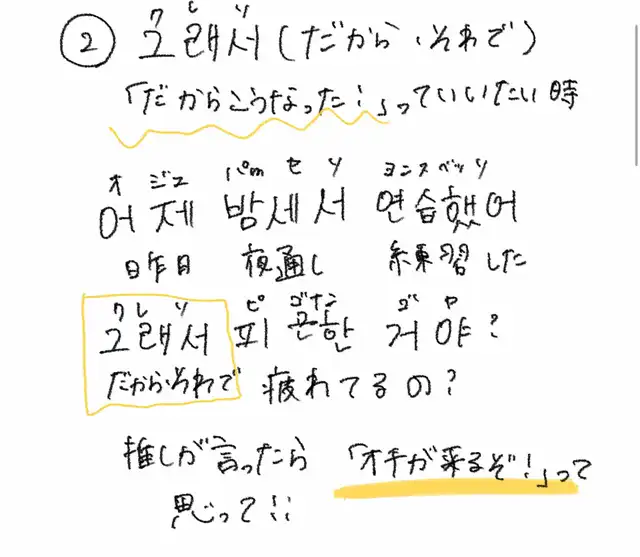 クレソ
② 그래서(だから・それで)
「だからこうなった!」っていいたい時
オジエ パm セソ ヨンスベッソ
어제 밤세서 연습했어
昨日 夜通し 練習した
クレソ ピゴナン ゴヤ
그래서 피곤한 거야?
だから・それで 疲れてるの?
推しが言ったら「オチが来るぞ!」って
思って!!